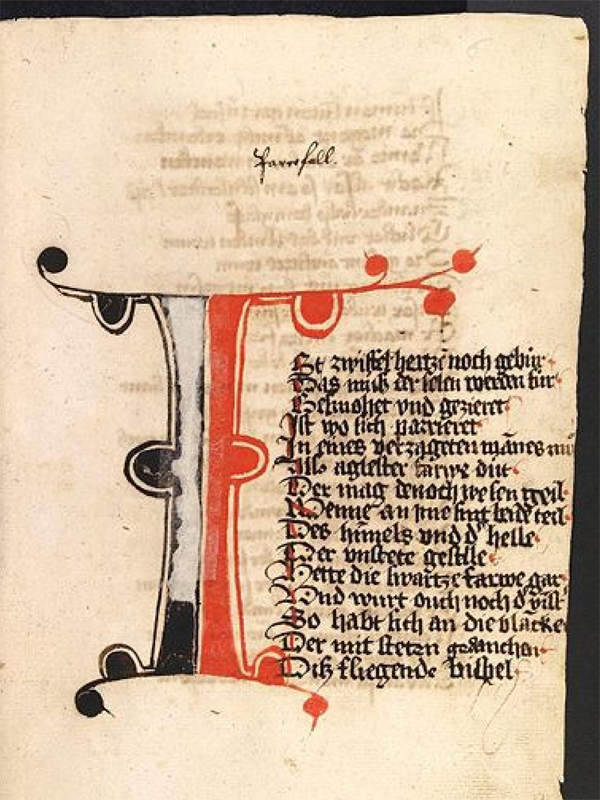 Parcefall.
I
St zwiffel hertze noch gebur
Das muß der selen werden sur
Gesmohet vnd gezieret
Ist wo sich parrieret
In eines verzageten mānes
Alle aglester farwe dut
Der mag denoch wesen geil
Wenne an yme sint beide teil
Des himels vnd d' helle
Der vnstete geselle
Hette die swartze farwe gar
Vnd wurt ouch noch d'
So habt sich an die blancke
Der mit steten gedancken
Diß fliegende bischel